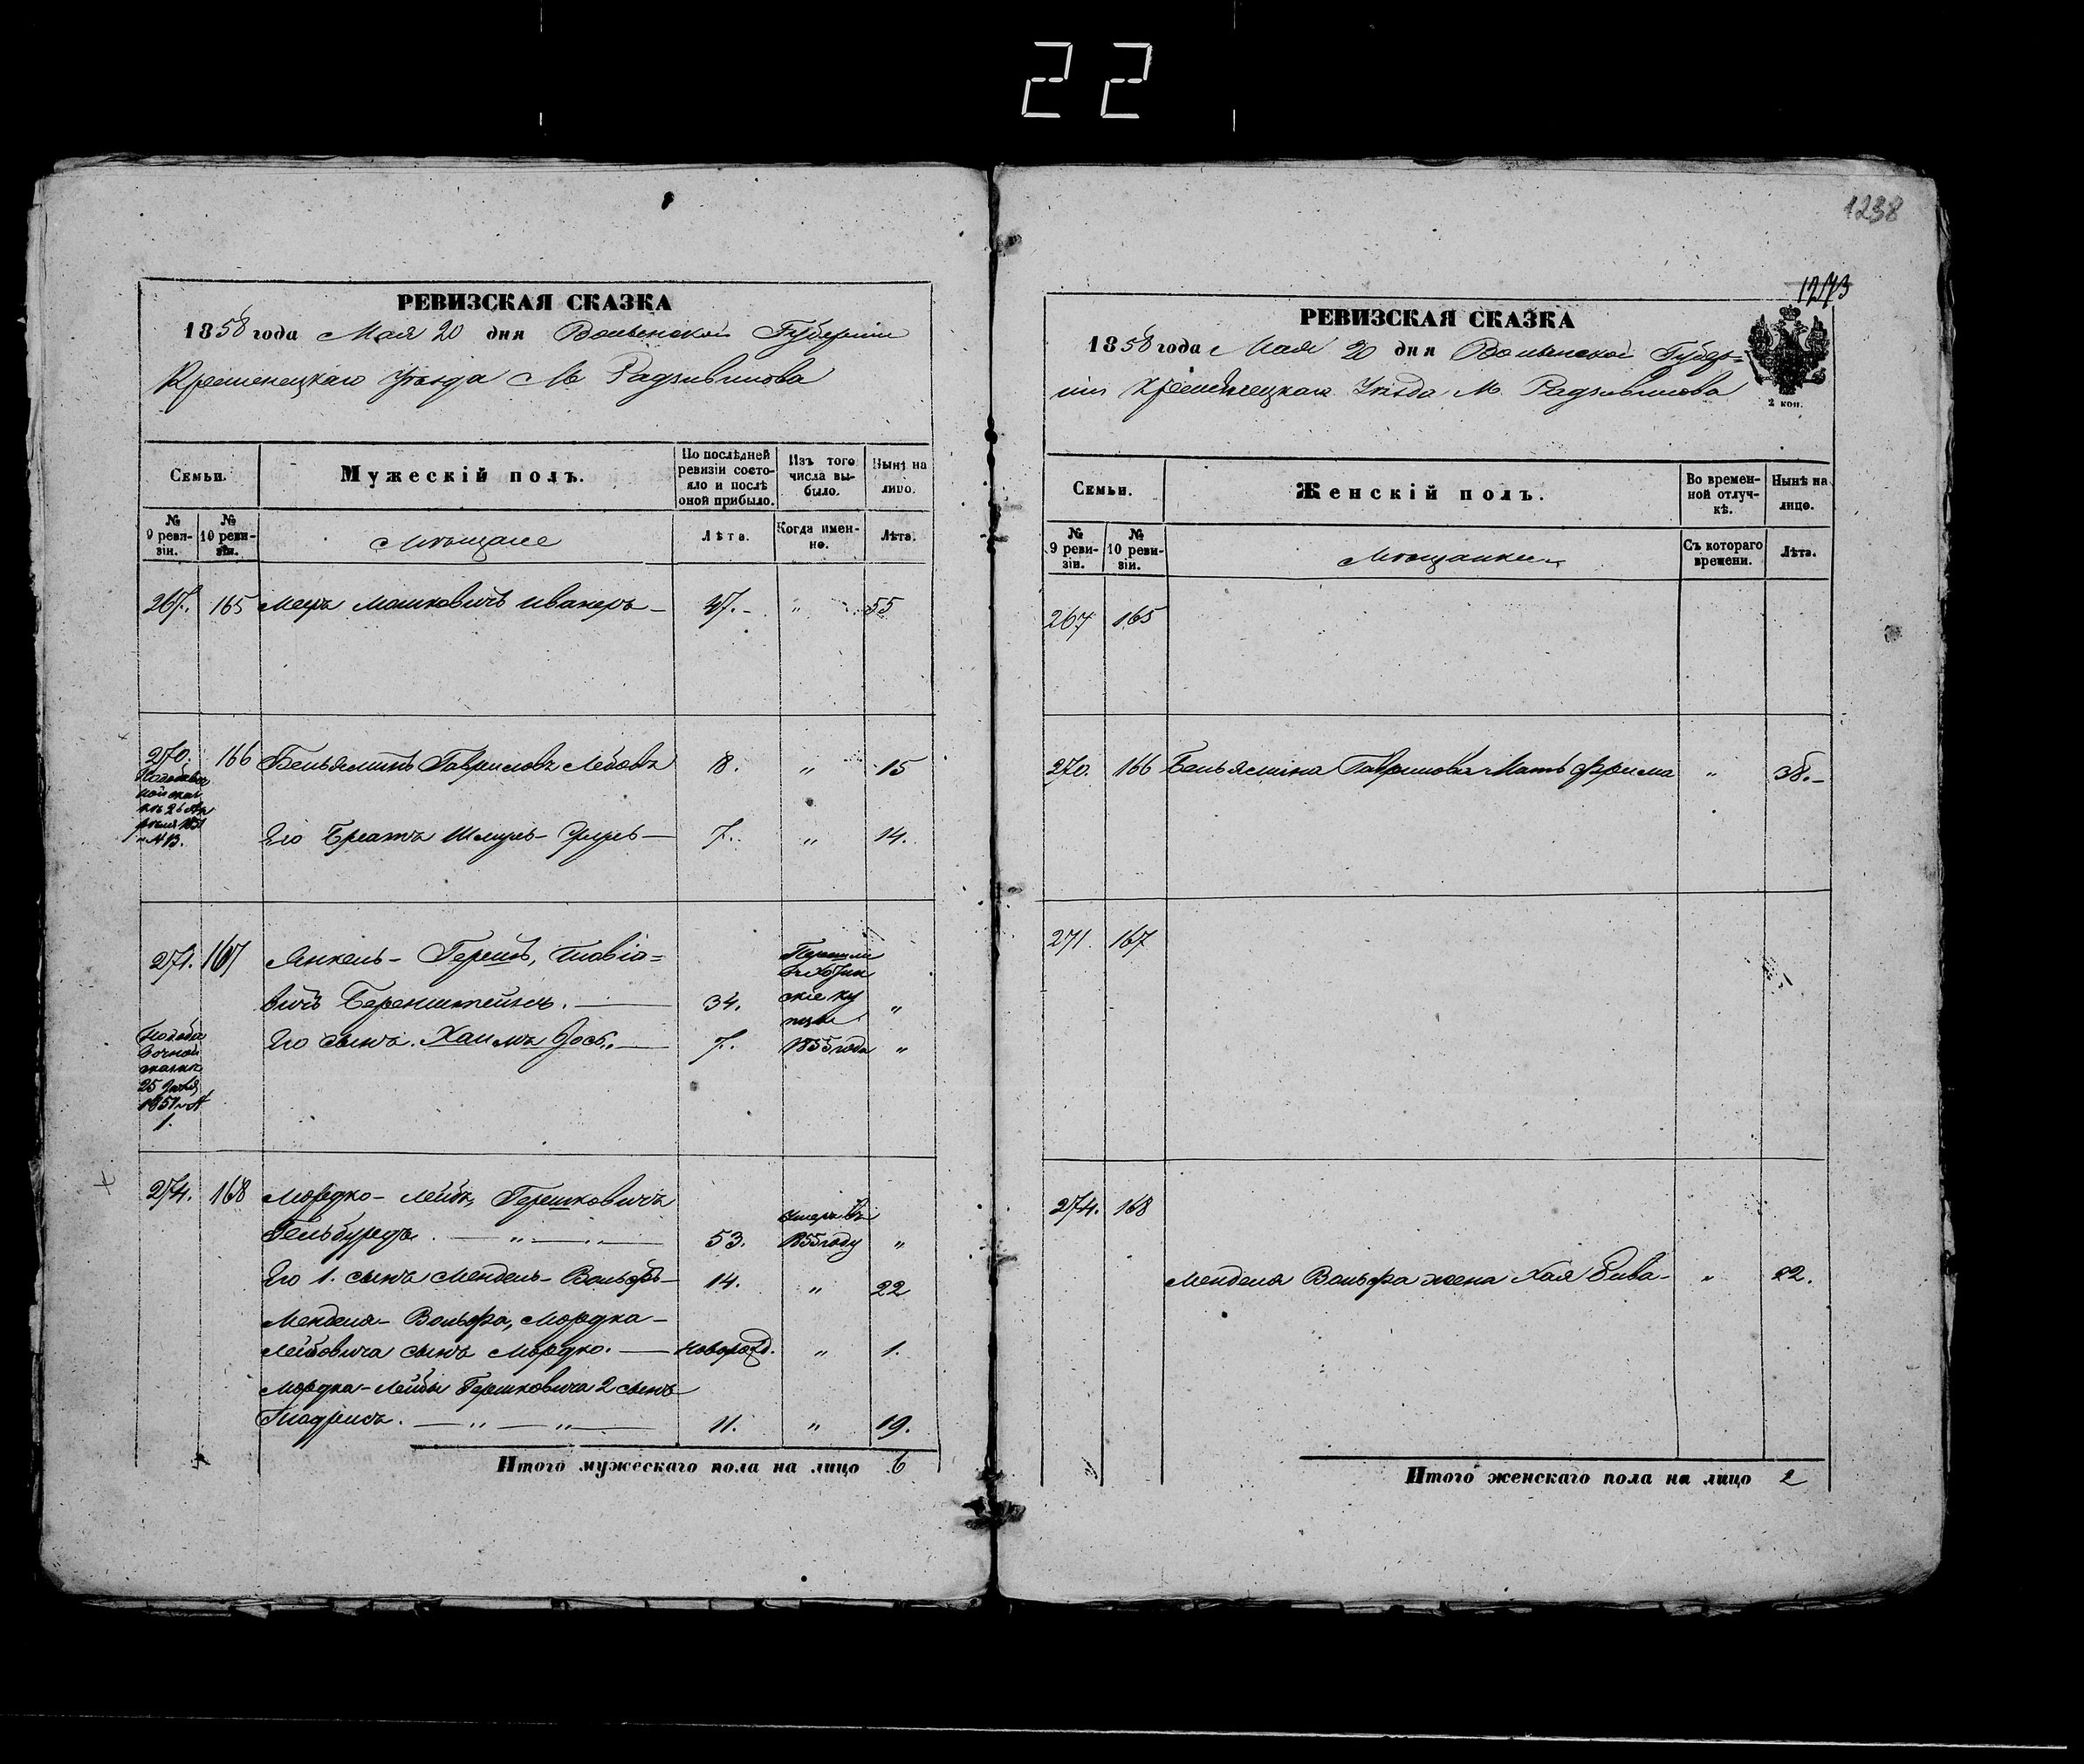 22
РЕВИЗСКАЯ СКАЗКА
1858 года Мая 20 дня Волынской Губерніи
Кременецкаго Уѣзда М Радзивилова
Семьи.
Мужескій полъ.
По послѣдней ревизіи состояло и послѣ оной прибыло.
Изъ того числа выбыло.
Нынѣ на лицо.
№ 9 ревизіи.
№ 10 ревизіи.
Мѣщане
Лѣта.
Когда именно.
Лѣта.
267. 165 Меръ Мошковичъ Иванеръ 47. „ 55
270. 166 Беньяминъ Гавриловъ Лейбовъ 8. „ 15
Его Братъ Шмуль- 7. „ 14.
271. 167 Янкель- Гершъ, Товіо=
вичъ Беренштейнъ. 34. „
Его сынъ. Хаимъ Іосъ. 7. 1855 года „
сказкѣ
25
1851 №
1.
274. 168 Мордко- Лейбъ, Гершковичъ
Гельбурдъ. „ 53. умеръ въ 1855 году „
Его 1. сынъ Мендель- Вольфъ 14. „ 22
Менделя- Вольфа, Мордка-
Лейбовича сынъ Мордко. новорожд. „ 1.
Мордка-Лейбы Гершковича 2 сынъ
„ „ 11. „ 19.
Итого мужескаго пола на лицо 6
1238
1273
РЕВИЗСКАЯ СКАЗКА
1858 года Мая 20 дня Волынской Губер=
ніи Кременецкаго Уѣзда М. Радзивилова
2 коп.
Семьи.
Женскій полъ.
Во временной отлучкѣ.
Нынѣ на лицо.
№ 9 ревизіи.
№ 10 ревизіи.
Мѣщанки
Съ котораго времени.
Лѣта.
267 165
270. 166 Беньямина Гаврилова Мать Фрима „ 38.
271. 167
274. 168
Менделя Вольфа жена Хая „ 22.
Итого женскаго пола на лицо 2